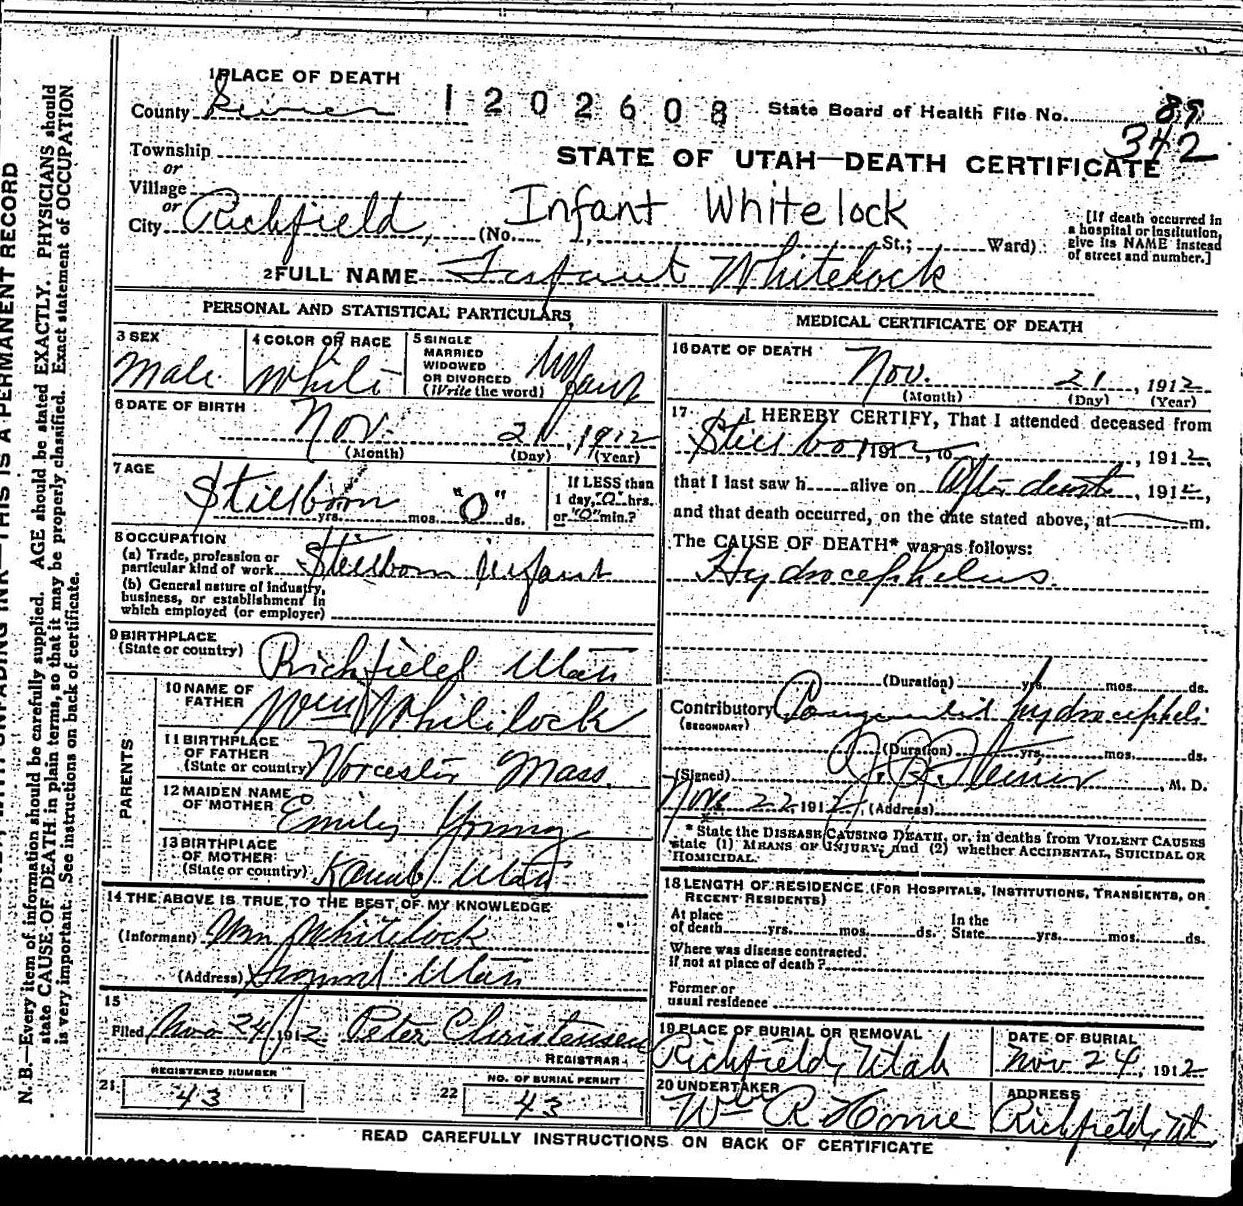 1 PLACE OF DEATH
County Sevier 1202608 State Board of Health File No. 89
342
Township
or
Village
or
City Richfield, (No. St.; Ward)
STATE OF UTAH—DEATH CERTIFICATE
Infant Whitelock
[If death occurred in
a hospital or institution,
give its NAME instead
of street and number.]
2 FULL NAME Infant Whitelock
PERSONAL AND STATISTICAL PARTICULARS
3 SEX
Male
4 COLOR OR RACE
White
5 SINGLE
MARRIED
WIDOWED
OR DIVORCED
(Write the word)
Infant
6 DATE OF BIRTH
Nov. 21, 1912
(Month) (Day) (Year)
7 AGE
Stillborn
yrs. mos. "0" ds.
If LESS than
1 day, "0" hrs.
or "0" min.?
8 OCCUPATION
(a) Trade, profession or
particular kind of work Stillborn infant
(b) General nature of industry,
business, or establishment in
which employed (or employer)
9 BIRTHPLACE
(State or country) Richfield Utah
PARENTS
10 NAME OF
FATHER Wm Whitelock
11 BIRTHPLACE
OF FATHER
(State or country) Worcester Mass.
12 MAIDEN NAME
OF MOTHER Emily Young
13 BIRTHPLACE
OF MOTHER
(State or country) Kanab Utah
14 THE ABOVE IS TRUE TO THE BEST OF MY KNOWLEDGE
(Informant) Wm Whitelock
(Address) Utah
15
Filed Nov 24 1912 Peter Christensen
REGISTRAR
21 REGISTERED NUMBER
43
22 NO. OF BURIAL PERMIT
43
MEDICAL CERTIFICATE OF DEATH
16 DATE OF DEATH
Nov. 21, 1912
(Month) (Day) (Year)
17 I HEREBY CERTIFY, That I attended deceased from
Stillborn, 191 , to , 1912,
that I last saw h alive on After death, 1912,
and that death occurred, on the date stated above, at m.
The CAUSE OF DEATH* was as follows:
Hydrocephelus.
(Duration) yrs. mos. ds.
Contributory
(SECONDARY)
(Duration) yrs. mos. ds.
(Signed) M. D.
Nov. 22, 1912 (Address)
* State the DISEASE CAUSING DEATH, or, in deaths from VIOLENT CAUSES
state (1) MEANS OF INJURY; and (2) whether ACCIDENTAL, SUICIDAL OR
HOMICIDAL.
18 LENGTH OF RESIDENCE (FOR HOSPITALS, INSTITUTIONS, TRANSIENTS, OR
RECENT RESIDENTS)
At place
of death yrs. mos. ds.
In the
State yrs. mos. ds.
Where was disease contracted,
If not at place of death?
Former or
usual residence
19 PLACE OF BURIAL OR REMOVAL
Richfield, Utah
DATE OF BURIAL
Nov. 24, 1912
20 UNDERTAKER
Wm R Horne
ADDRESS
Richfield, Ut.
READ CAREFULLY INSTRUCTIONS ON BACK OF CERTIFICATE
THIS IS A PERMANENT RECORD
N. B.—Every item of information should be carefully supplied. AGE should be stated EXACTLY. PHYSICIANS should
state CAUSE OF DEATH in plain terms, so that it may be properly classified. Exact statement of OCCUPATION
is very important. See instructions on back of certificate.